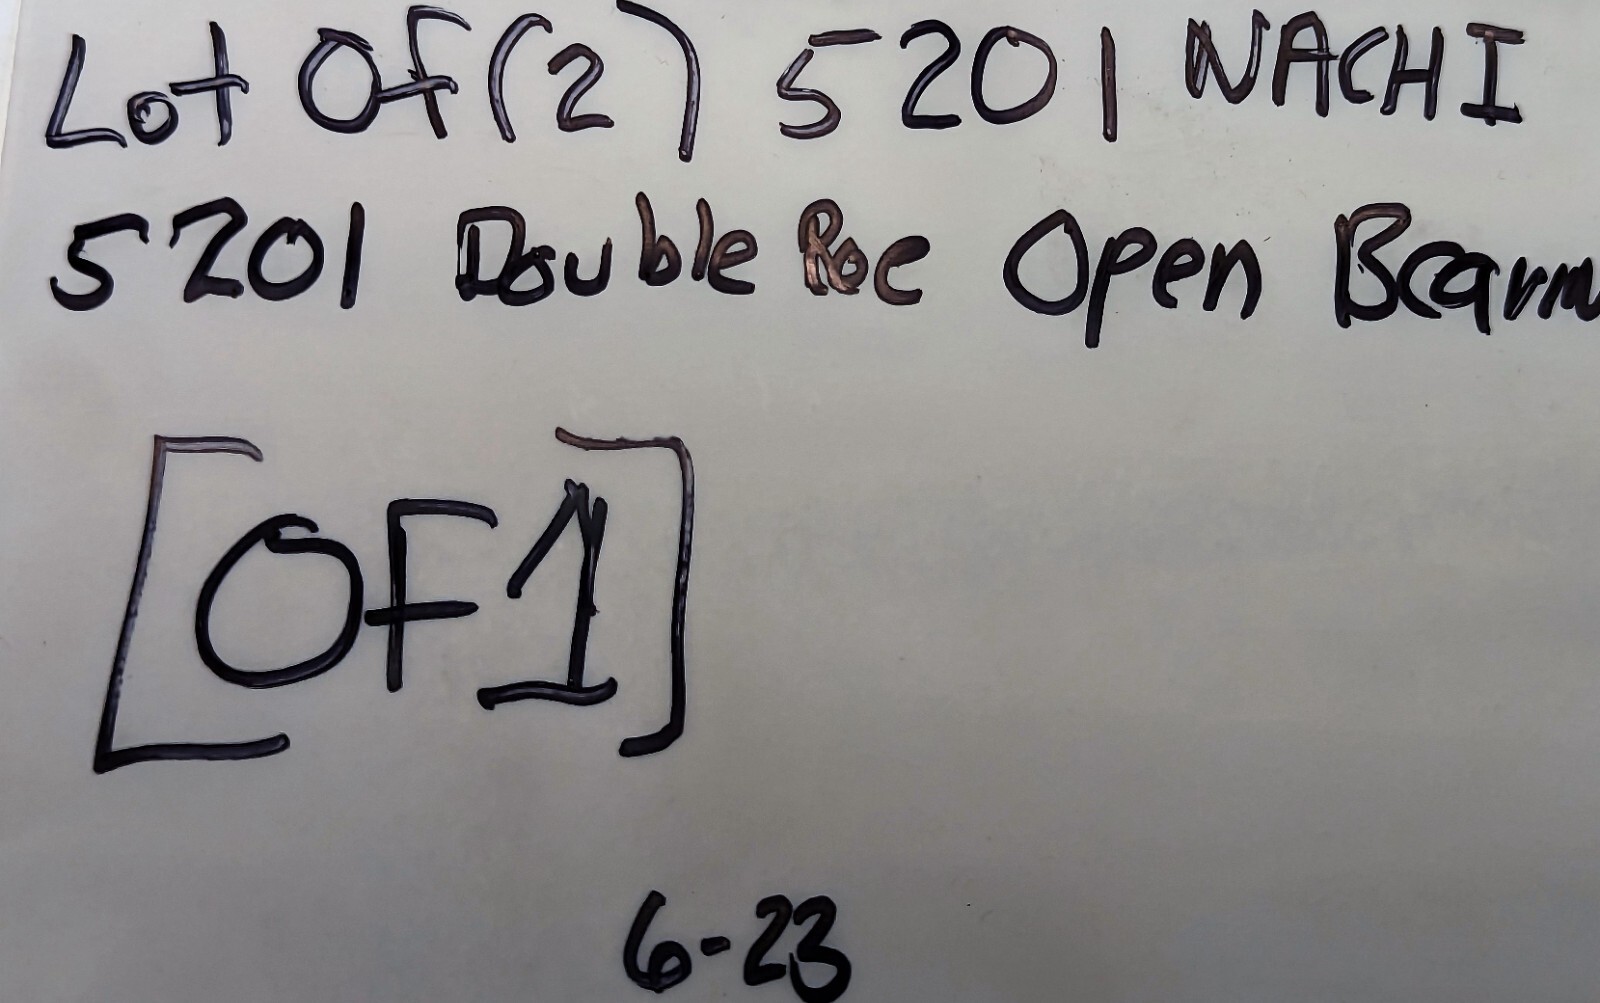 Lot Of (2) 5201 NACHI
5201 Double Roe Open Bearin
[OF1]
6-23